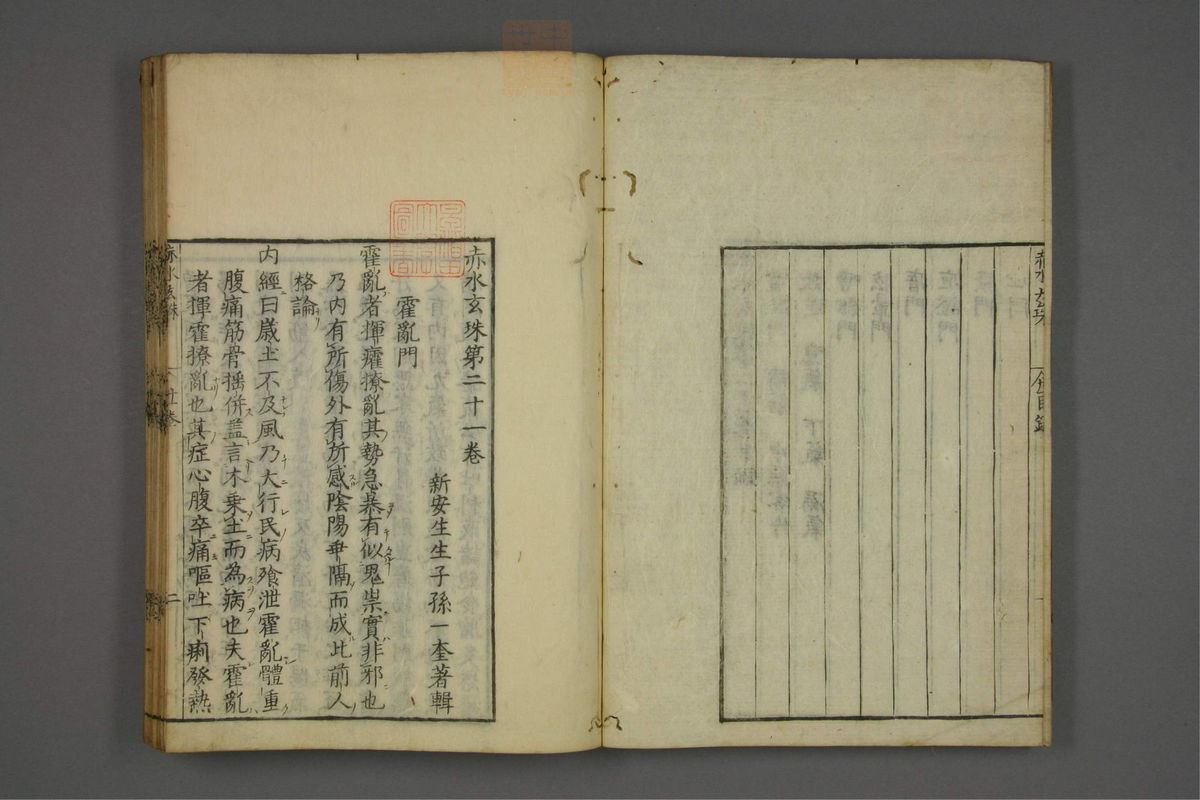 赤水玄珠
赤水玄珠第二十一卷
新安生生子孫一奎著輯
霍亂門
霍亂者揮癨撩亂其勢急暴有似鬼祟實非邪也
乃内有所傷外有所感陰陽乖隔而成此前人
格論
内經曰歲土不及風乃大行民病飱泄霍亂體重
腹痛筋骨揺併盖言木乗土而為病也夫霍亂
者揮霍撩亂也其症心腹卒痛嘔吐下痢發熱
赤水玄珠
廿一卷
二